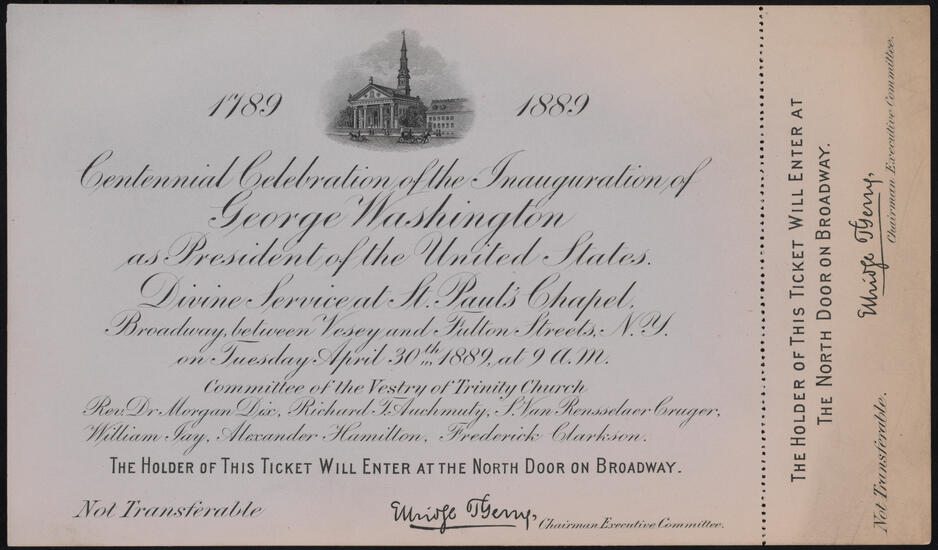 1789 1889
Centennial Celebration of the Inauguration of
George Washington
as President of the United States.
Divine Service at St. Paul's Chapel,
Broadway, between Vesey and Fulton Streets, N.Y.
on Tuesday April 30th 1889, at 9 A.M.
Committee of the Vestry of Trinity Church
Rev. Dr. Morgan Dix, Richard T. Auchmuty, S. Van Rensselaer Cruger,
William Jay, Alexander Hamilton, Frederick Clarkson.
THE HOLDER OF THIS TICKET WILL ENTER AT THE NORTH DOOR ON BROADWAY.
Not Transferable Elbridge T. Gerry, Chairman Executive Committee.
THE HOLDER OF THIS TICKET WILL ENTER AT
THE NORTH DOOR ON BROADWAY.
Elbridge T. Gerry,
Chairman Executive Committee.
Not Transferable.